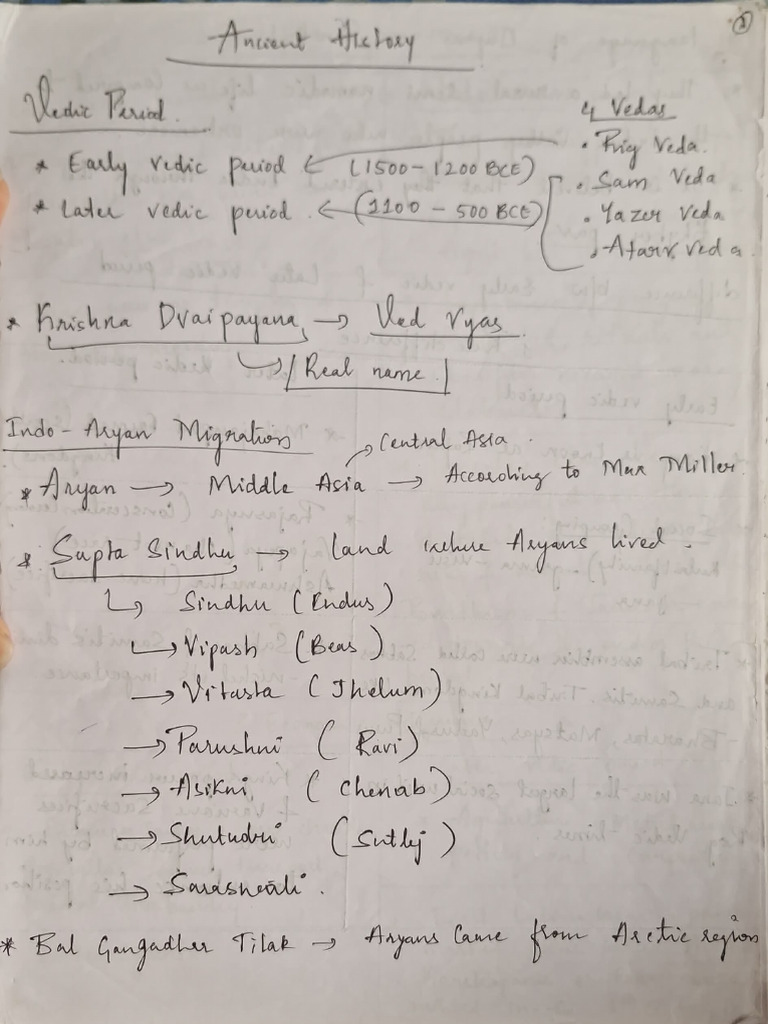 2
Ancient History
Vedic Period.
4 Vedas
• Rig Veda.
* Early vedic period ← (1500 - 1200 BCE)
• Sam Veda
* Later vedic period. ← (1100 - 500 BCE)
• Yazer Veda
• Atarv veda
* Krishna Dvaipayana → Ved Vyas
↳ Real name
Indo-Aryan Migration
→ Central Asia.
* Aryan → Middle Asia → According to Max Miller.
* Supta Sindhu → Land where Aryans lived.
↳ Sindhu (Endus)
↳ Vipash (Beas)
→ Vitasta (Jhelum)
→ Parushni (Ravi)
→ Asikni (Chenab)
→ Shutudri (Sutlej)
→ Saraswati.
* Bal Gangadher Tilak → Aryans came from Arctic region